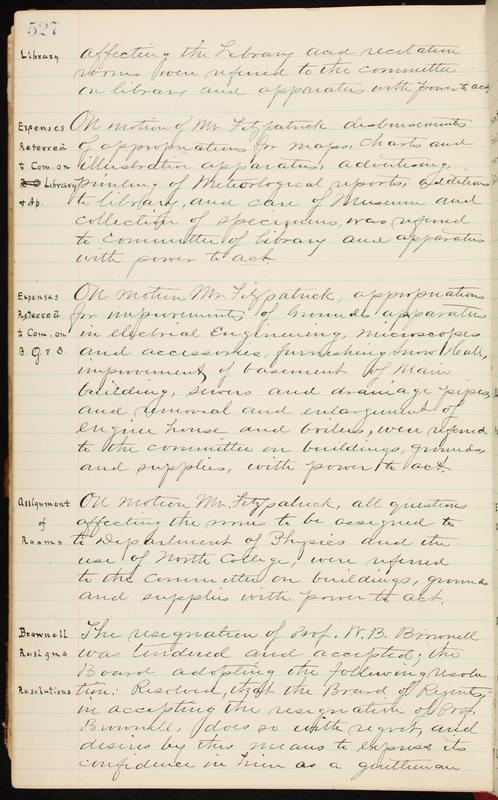 527
Library affecting the Library and recitation
rooms were referred to the committee
on library and apparatus with power to act
Expenses On motion of Mr. Fitzpatrick disbursements
Referred of appropriations for maps, charts and
to Com. on illustrative apparatus, advertising,
Library printing of Meteorlogical reports, additions
& Ap. to library, and care of Museum and
collection of specimens, was referred
to committee of library and apparatus
with power to act.
Expenses On motion Mr. Fitzpatrick, appropriations
Referred for improvements of Grounds apparatus
to Com. on in electrial Engineering, microscopes
B. G & S. and accessories, furnishing new Hall,
improvement of basement of Main
building, sewers and drainage pipes,
and removal and enlargement of
engine house and boilers, were referred
to the committee on buildings, grounds,
and supplies, with power to act.
Assignment On motion Mr. Fitzpatrick, all questions
of affecting the rooms to be assigned to
Rooms to Department of Physics and the
use of North College, were referred
to the committee on buildings, grounds
and supplies with power to act.
Brownell The resignation of Prof. W. B. Brownell
Resigns was tendered and accepted; the
Board adopting the following resolu
Resolutions tion: Resolved, that the Board of Regents,
in accepting the resignation of Prof.
Brownell, does so with regret, and
desires by this means to express its
confidence in him as a gentleman